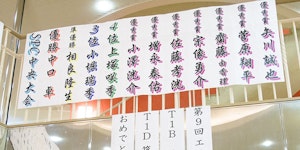 優秀賞 矢川誠也
優秀賞 菅原翔平
優秀賞 齋藤由香理
優秀賞 宗像勇介
優秀賞 佐藤孝洸
優秀賞 増永泰佑
優秀賞 小澤洸介
4位 上塚咲季
3位 小堀瑞季
準優勝 相良隆生
優勝 中口車
中央大会
第9回エ
T1B
T1D
おめでと